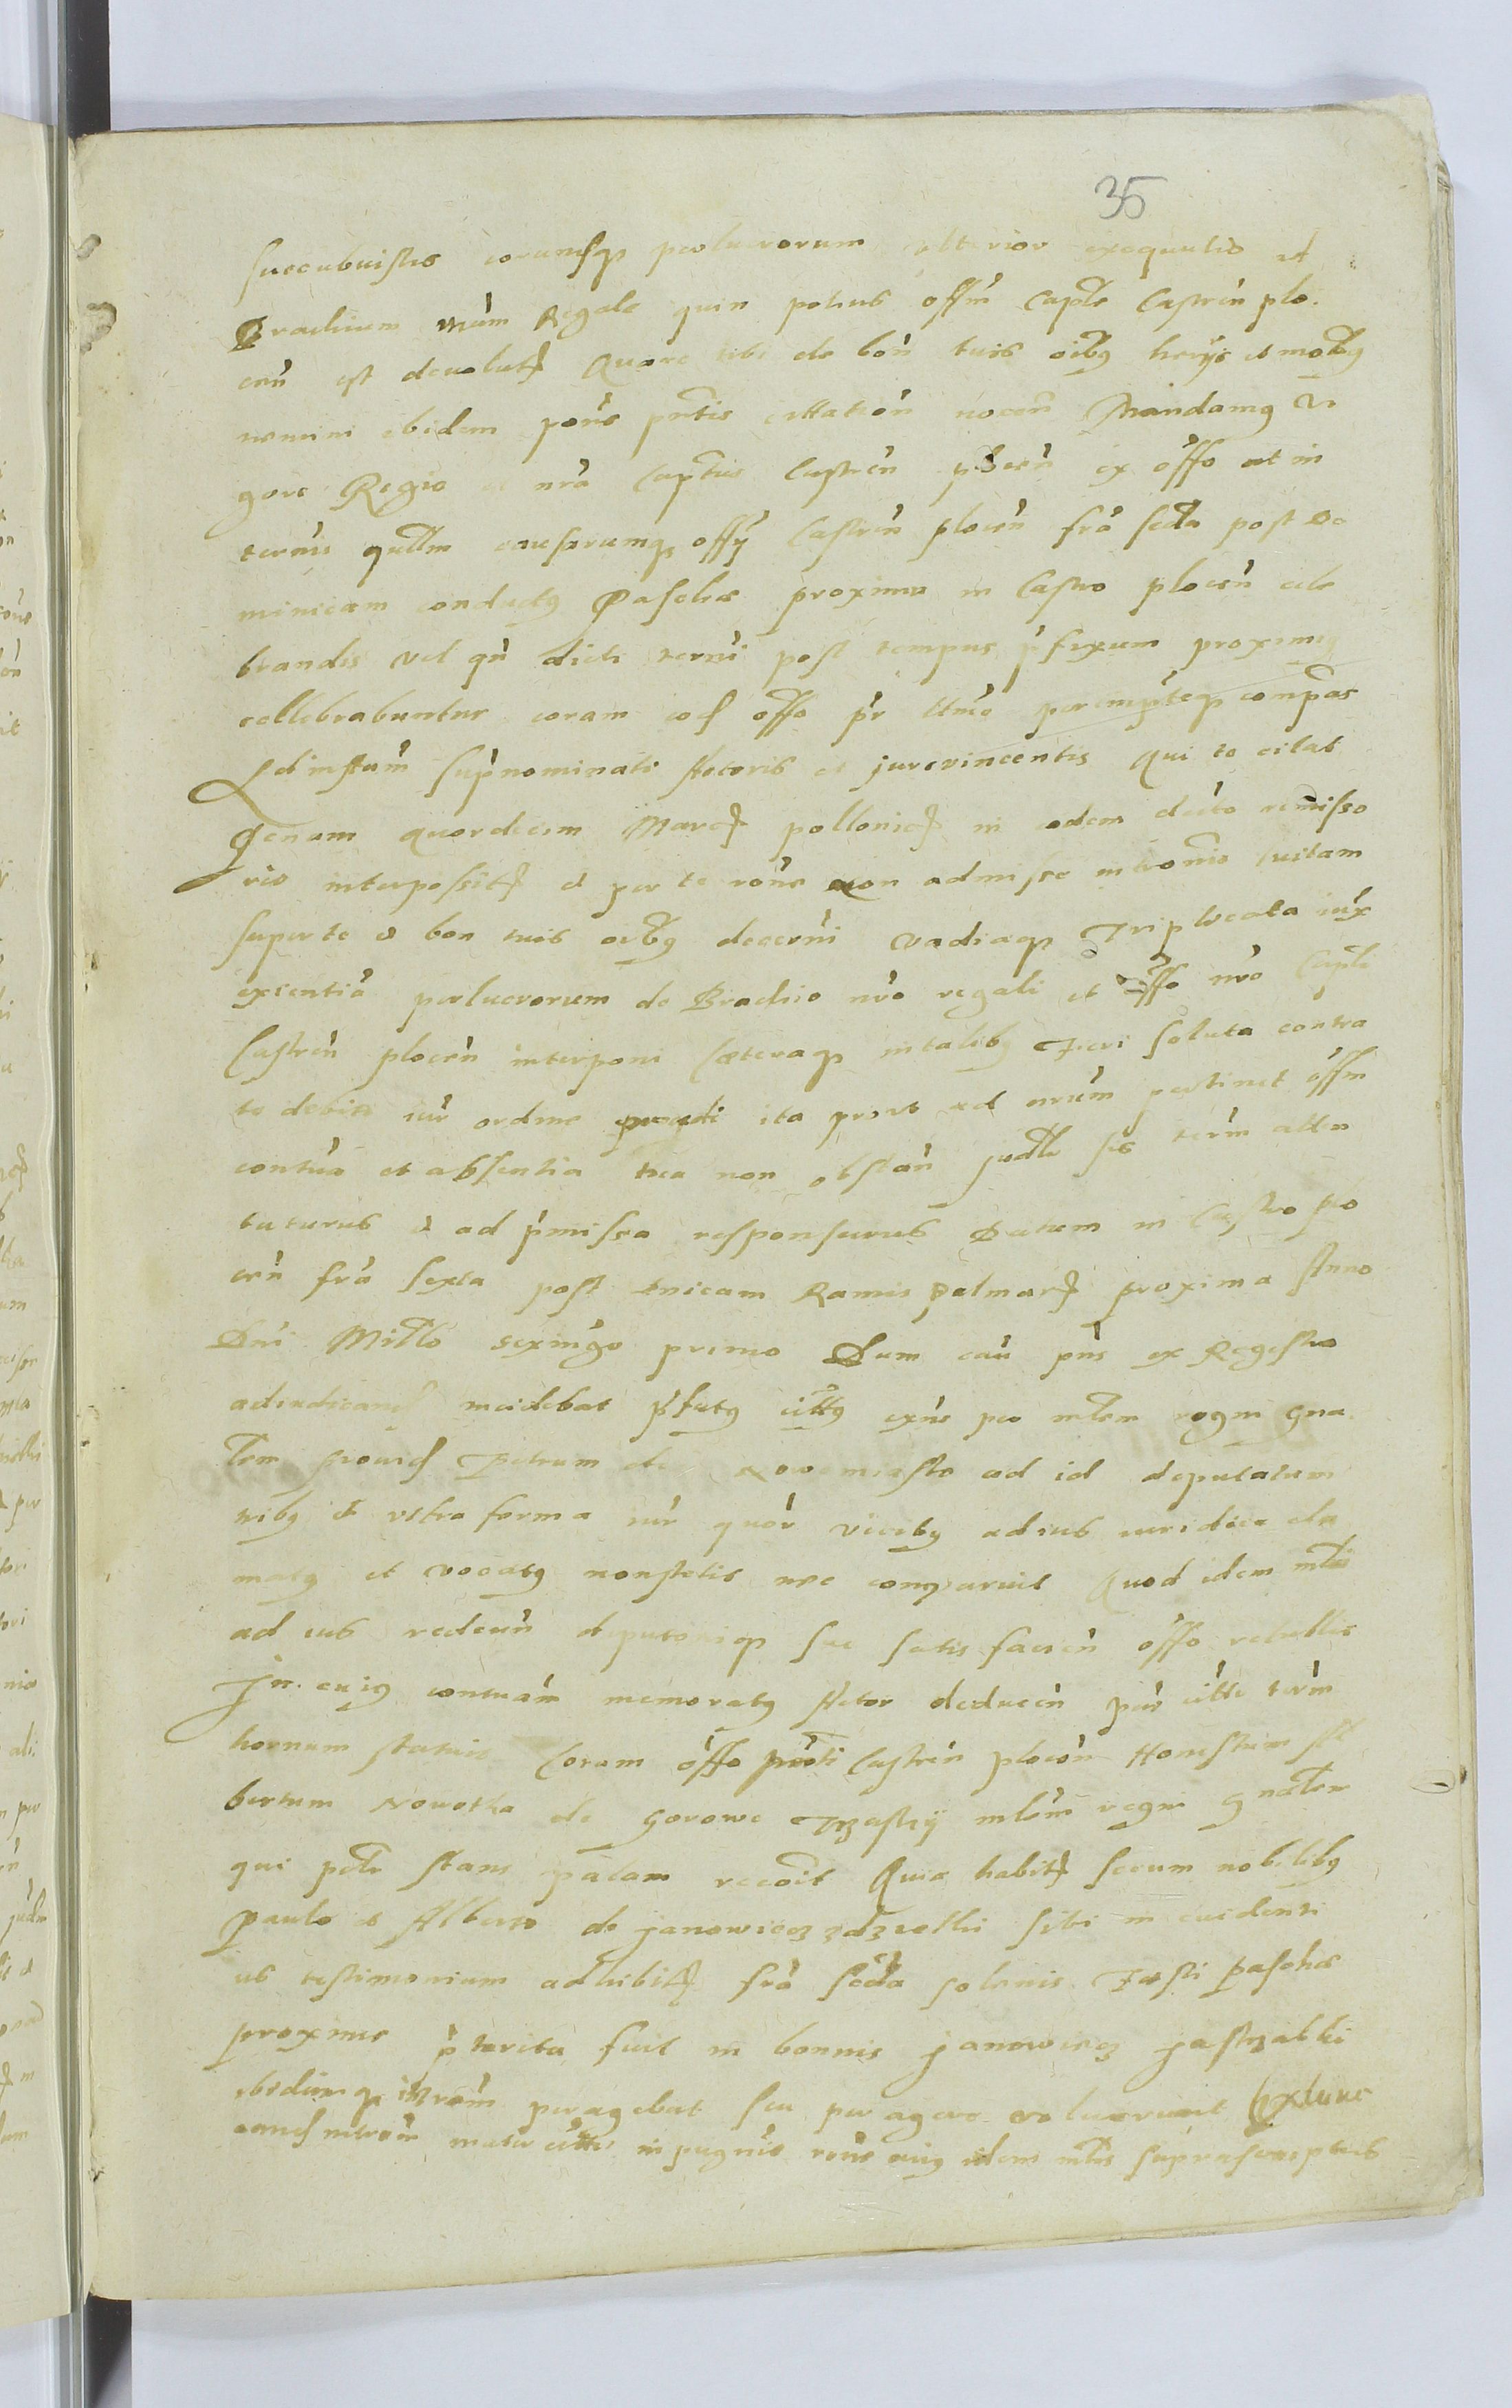 35
succubuistis eorumq perlucrorum ulterior exequutio ad
Brachium nrum Regale quin potius offm Capte Castren plo
cen est devolut Quare tibi de bon tuis oibq heriis et mobq
nemini ibidem pontis citation nocen Mandamq Vi
gore Regio et nra Captus Castren plocen ex offo ut in
ternis qllm causarumq offy Castren plocen fra scda post do
minicam conductq Paschae proximo in Castro plocen cele
brandis vel qn dicti termi post tempus pfixum proximi
cellebrabuntur coram eod offo pr ttme peremptq compas
Ad instam supnominati Actoris et jurevincentis Qui te citat
Penam quordecim Marc pollonic in eodem decto remisso
rio interpossit et per te rone non admisse intromis luitam
super te et bon tuis oibq decerni vadiaq Triplicata iux
exientia perlucrorum de Brachio nro regali et offo nro Capti
Castren plocen interponi Caeteraq in talibq Fieri soluta contra
te debito iur ordine procedi ita prout ad nrum pertinet offm
contua et absentia tua non obstan judlr sis term atten
taturus et ad pmissa responsurus Datum in Castro plo
cen fra sexta post dnicam Ramis palmar proxima Anno
Dni Millo sexingo primo Dum cau pns ex Regestro
adiudicand incidebat pfatq cittq exns per mlem regni gna
lem provid Petrum de Nowemiasto ad id deputatum
tribq et ultra forma iur quor vicibq ad ius iuridice cla
matq et vocatq non stetit nec comparuit Quod idem mlis
ad ius redeun deputoniq sue satisfacien offo retullit
In cuiq contuam memoratq Actor deducen pns citte term
hornum statuit Coram offo pnti Castren plocen Honestum Al
bertum Nowotka de Gorowe Trzastij mlem regni gnalem
qui pctr stans palam recoit Quia habit secum nobilibq
Paulo et Alberto de janowicz zdzielki sibi in euidenti
us testimonium adhibit fra scda solenis Festi paschae
proxime pterita fuit in bonnis janowicz jastrzabki
ibidemq introm peragebat seu peragere voluerunt Extunc
eand introm mater citte inpugnis rone cuiq idem mlis suprascriptus